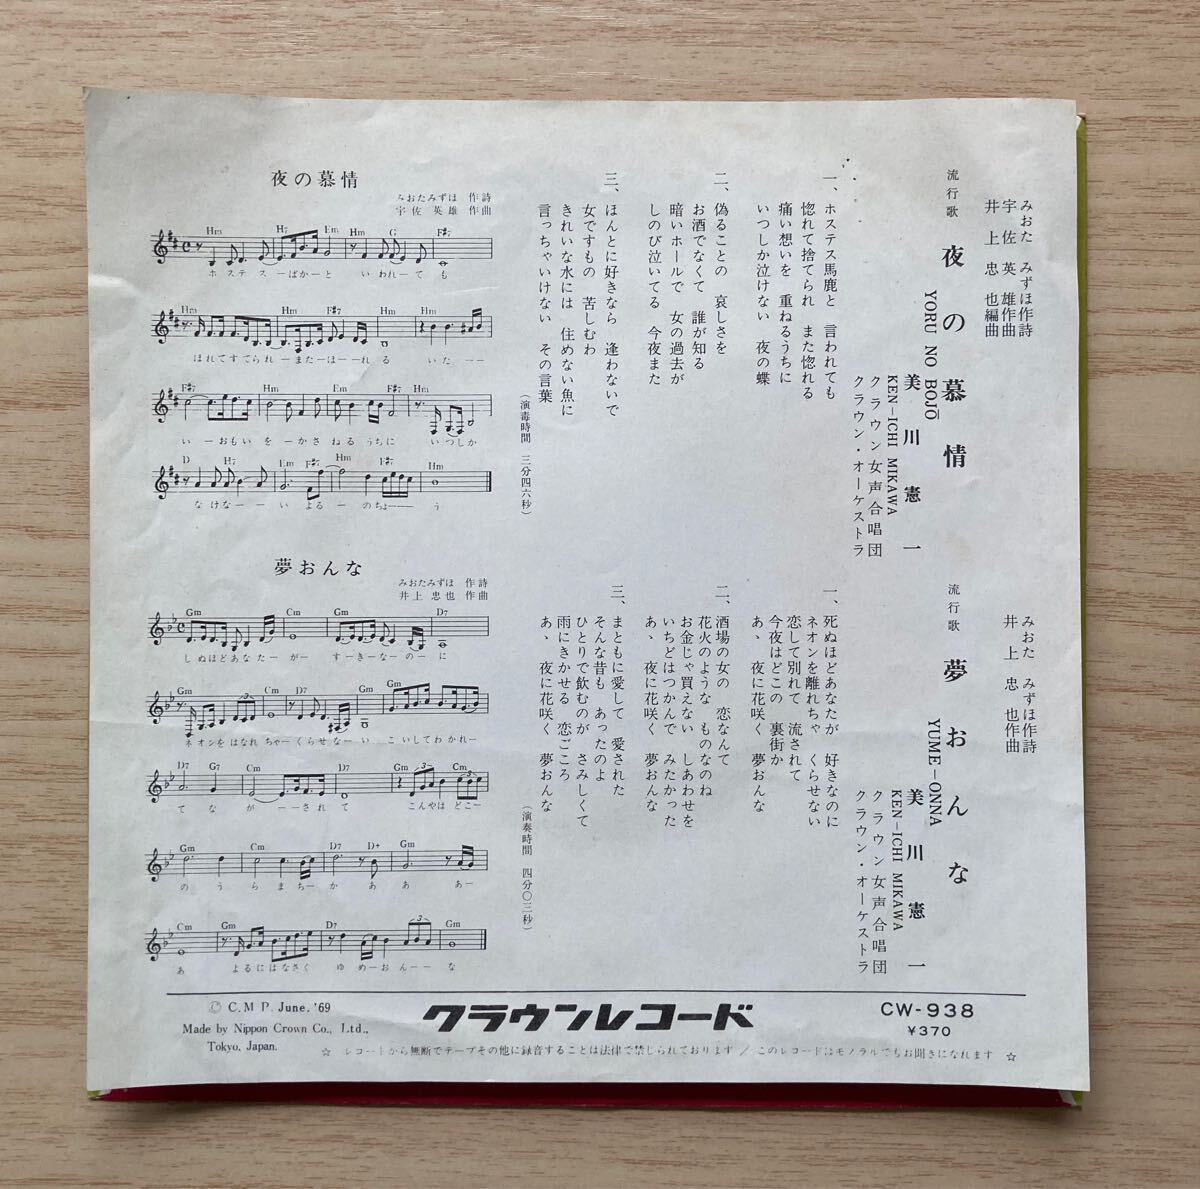 みおた みずほ作詩
宇佐英雄作曲
井上忠也編曲
流行歌
夜の慕情
YORU NO BOJŌ
美川憲一
KEN-ICHI MIKAWA
クラウン女声合唱団
クラウン・オーケストラ
一、ホステス馬鹿と 言われても
惚れて捨てられ また惚れる
痛い想いを 重ねるうちに
いつしか泣けない 夜の蝶
二、偽ることの 哀しさを
お酒でなくて 誰が知る
暗いホールで 女の過去が
しのび泣いてる 今夜また
三、ほんとに好きなら 逢わないで
女ですもの 苦しむわ
きれいな水には 住めない魚に
言っちゃいけない その言葉
(演毒時間 三分四六秒)
みおた みずほ作詩
井上忠也作曲
流行歌
夢おんな
YUME-ONNA
美川憲一
KEN-ICHI MIKAWA
クラウン女声合唱団
クラウン・オーケストラ
一、死ぬほどあなたが 好きなのに
ネオンを離れちゃ くらせない
恋して別れて 流されて
今夜はどこの 裏街か
あゝ 夜に花咲く 夢おんな
二、酒場の女の 恋なんて
花火のような ものなのね
お金じゃ買えない しあわせを
いちどはつかんで みたかった
あゝ 夜に花咲く 夢おんな
三、まともに愛して 愛された
そんな昔も あったのよ
ひとりで飲むのが さみしくて
雨にきかせる 恋ごころ
あゝ 夜に花咲く 夢おんな
(演奏時間 四分〇三秒)
夜の慕情
みおたみずほ 作詩
宇佐英雄 作曲
Hm H7 Em Hm G F#7
ホステスーばかーと いわれーても
Hm Em F#7 Hm Hm
ほれてすてられーまたーほーーれる いたーー
F#7 Hm Em F#7 Hm
いーおもいをーかさねるうちに いつしか
D H7 Em F#7 Hm F#7 Hm
なけなーーいよるーのちょーーう
夢おんな
みおたみずほ 作詩
井上忠也 作曲
Gm Cm Gm D7
しぬほどあなたーがーすーきーなーのーに
Gm Cm D7 Gm
ネオンをはなれちゃーくらせなーい こいしてわかれー
D7 G7 Cm D7 Gm Cm
てながーーされて こんやはどこー
Gm Cm D7 D+ Gm
のうらまちーかああ あー
Cm Gm D7 Gm
あ よるにはなさく ゆめーおんーーな
© C.M P. June. '69
Made by Nippon Crown Co., Ltd.,
Tokyo, Japan.
クラウンレコード
CW-938
¥370
☆ レコードから無断でテープその他に録音することは法律で禁じられております / このレコードはモノラルでもお聞きになれます ☆